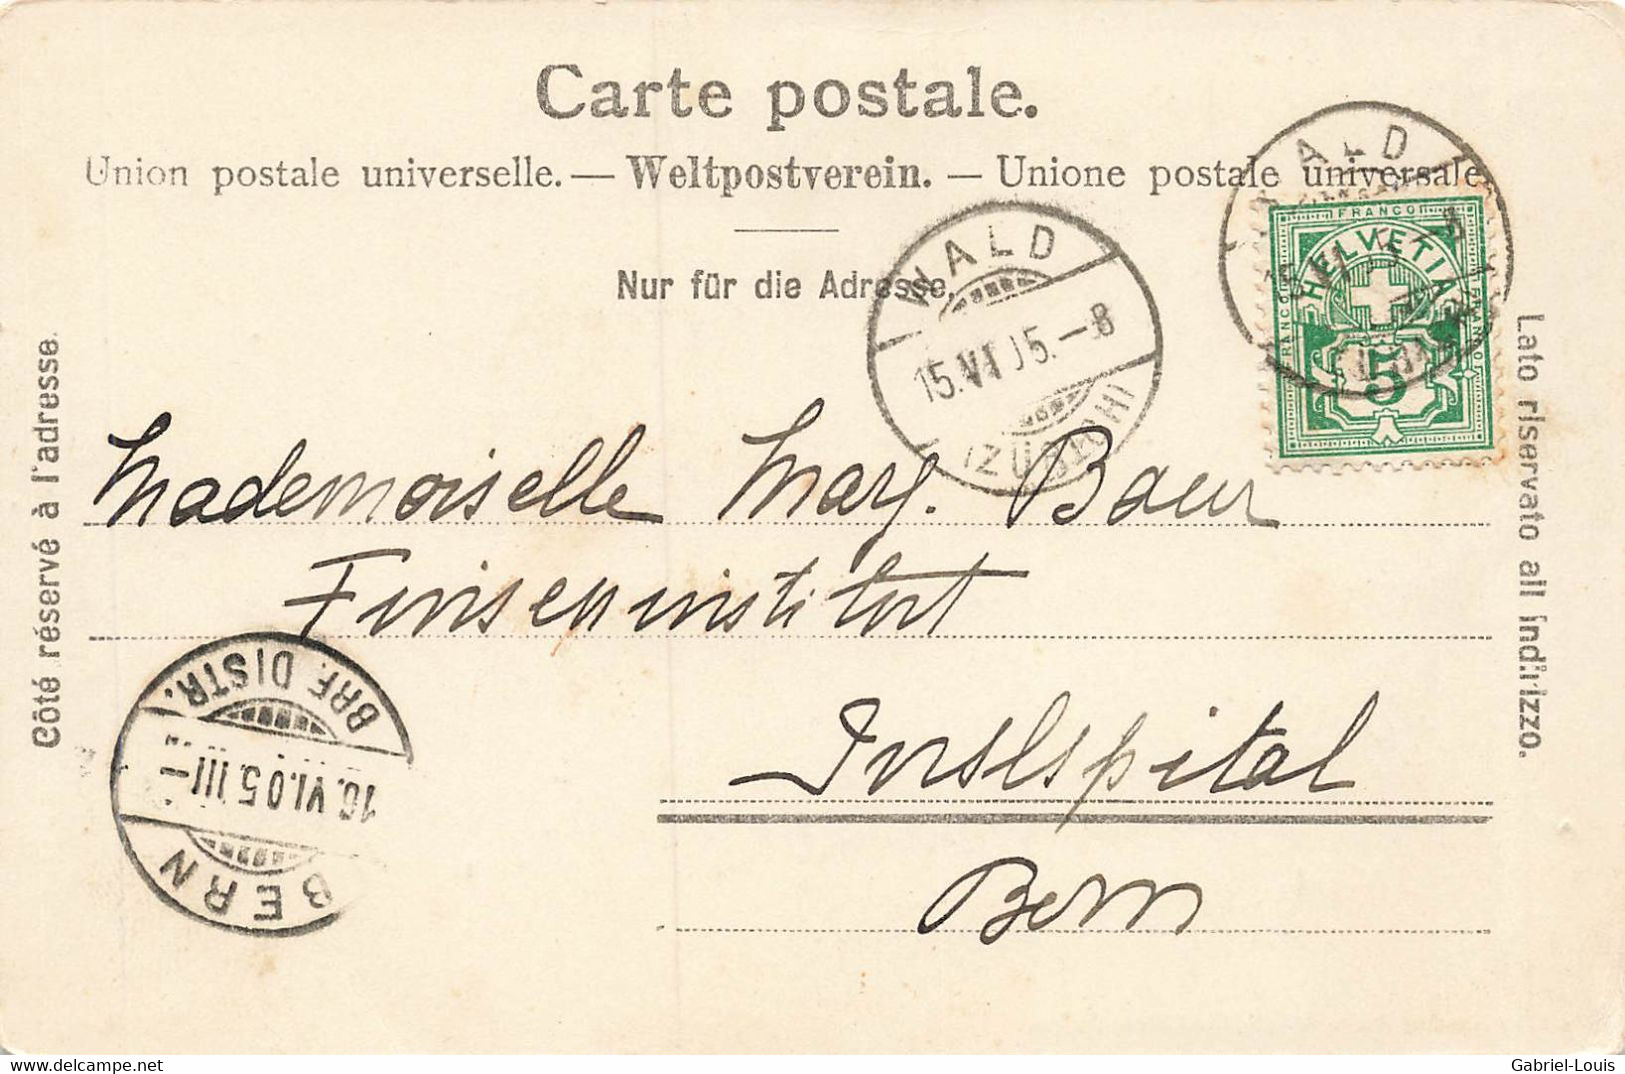 Carte postale.
Union postale universelle. — Weltpostverein. — Unione postale universale
Nur für die Adresse.
Côté réservé à l'adresse.
Lato riservato all indirizzo.
WALD
15.VI.05.–8
(ZÜRICH)
WALD
FRANCO
HELVETIA
FRANCO
FRANCO
5
Mademoiselle Marg. Baur
Finseninstitut
Inselspital
Bern
BRF. DISTR.
16.VI.05.III–
BERN
delcampe.net
Gabriel-Louis